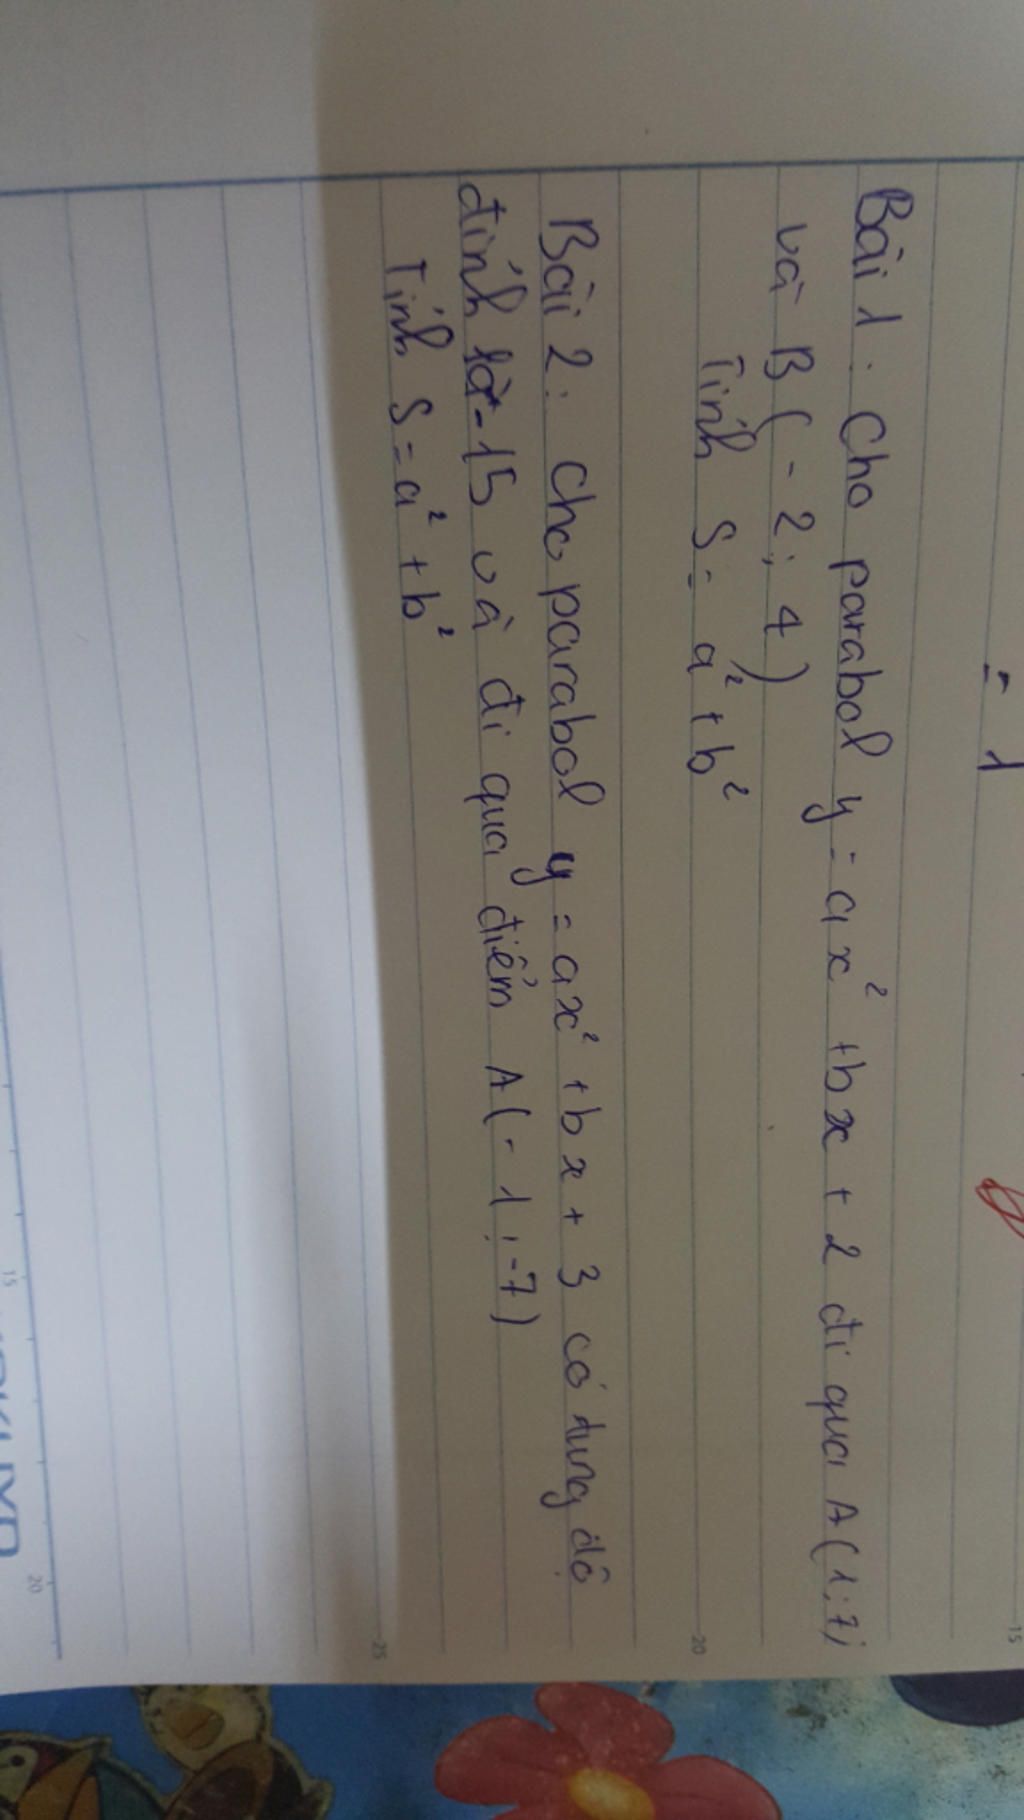 = 1
15
Bài 1. Cho parabol y = ax² + bx + 2 đi qua A(1;7)
và B(-2; 4)
Tính S = a² + b²
20
Bài 2: Cho parabol y = ax² + bx + 3 có tung độ
đỉnh là -15 và đi qua điểm A(-1; -7)
Tính S = a² + b²
25
15
20